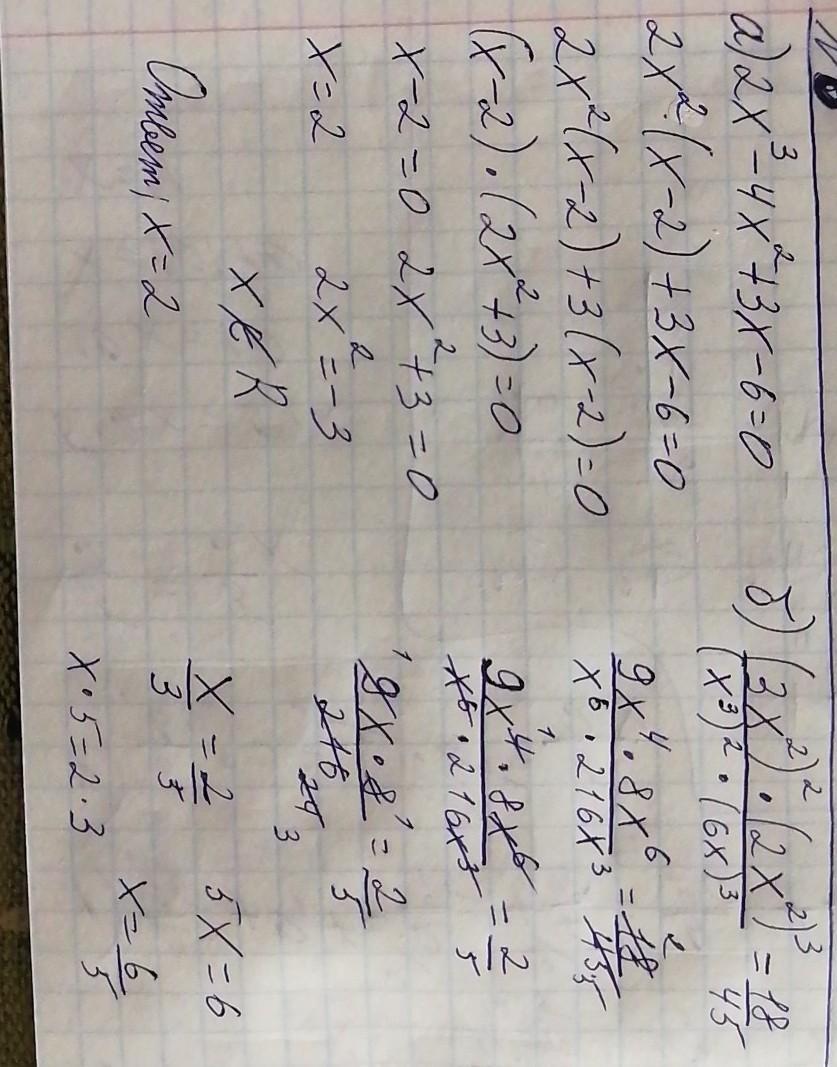 а) 2x³-4x²+3x-6=0
2x²·(x-2)+3x-6=0
2x²(x-2)+3(x-2)=0
(x-2)·(2x²+3)=0
x-2=0 2x²+3=0
x=2 2x²=-3
x∉R
Ответ: x=2
б) (3x²)²·(2x²)³/(x³)²·(6x)³ = 18/45
9x⁴·8x⁶/x⁶·216x³ = 18 2/45 5
9x⁴ ¹·8x⁶/x⁶·216x³ = 2/5
¹9x·8¹/216 24 3 = 2/5
x/3 = 2/5 5x=6
x·5=2·3 x=6/5